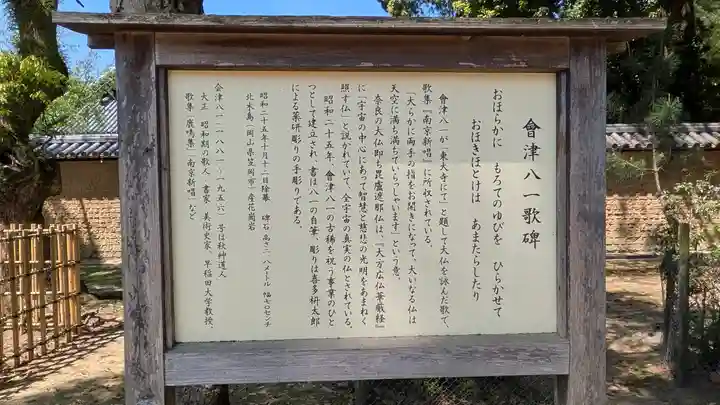 會津八一歌碑
おほらかに　もろてのゆびを　ひらかせて
おほきほとけは　あまたらしたり
會津八一が「東大寺にて」と題して大仏を詠んだ歌で、
歌集『南京新唱』に所収されている。
「大らかに両手の指をお開きになって、大いなる仏は
天空に満ち満ちていらっしゃいます」という意。
奈良の大仏即ち毘盧遮那仏は、『大方広仏華厳経』
に「宇宙の中心にあって智慧と慈悲の光明をあまねく
照す仏」と説かれていて、全宇宙の真実の仏とされている。
昭和二十五年、會津八一の古稀を祝う事業のひと
つとして建立され、書は八一の自筆、彫りは喜多枡太郎
による薬研彫りの手彫りである。
昭和二十五年十月十二日除幕　碑石　高さ二・八メートル　幅七〇センチ
北木島（岡山県笠岡市）産花崗岩
会津八一（一八八一〜一九五六）　号は秋艸道人
大正　昭和期の歌人　書家　美術史家　早稲田大学教授、
歌集「鹿鳴集」「南京新唱」など